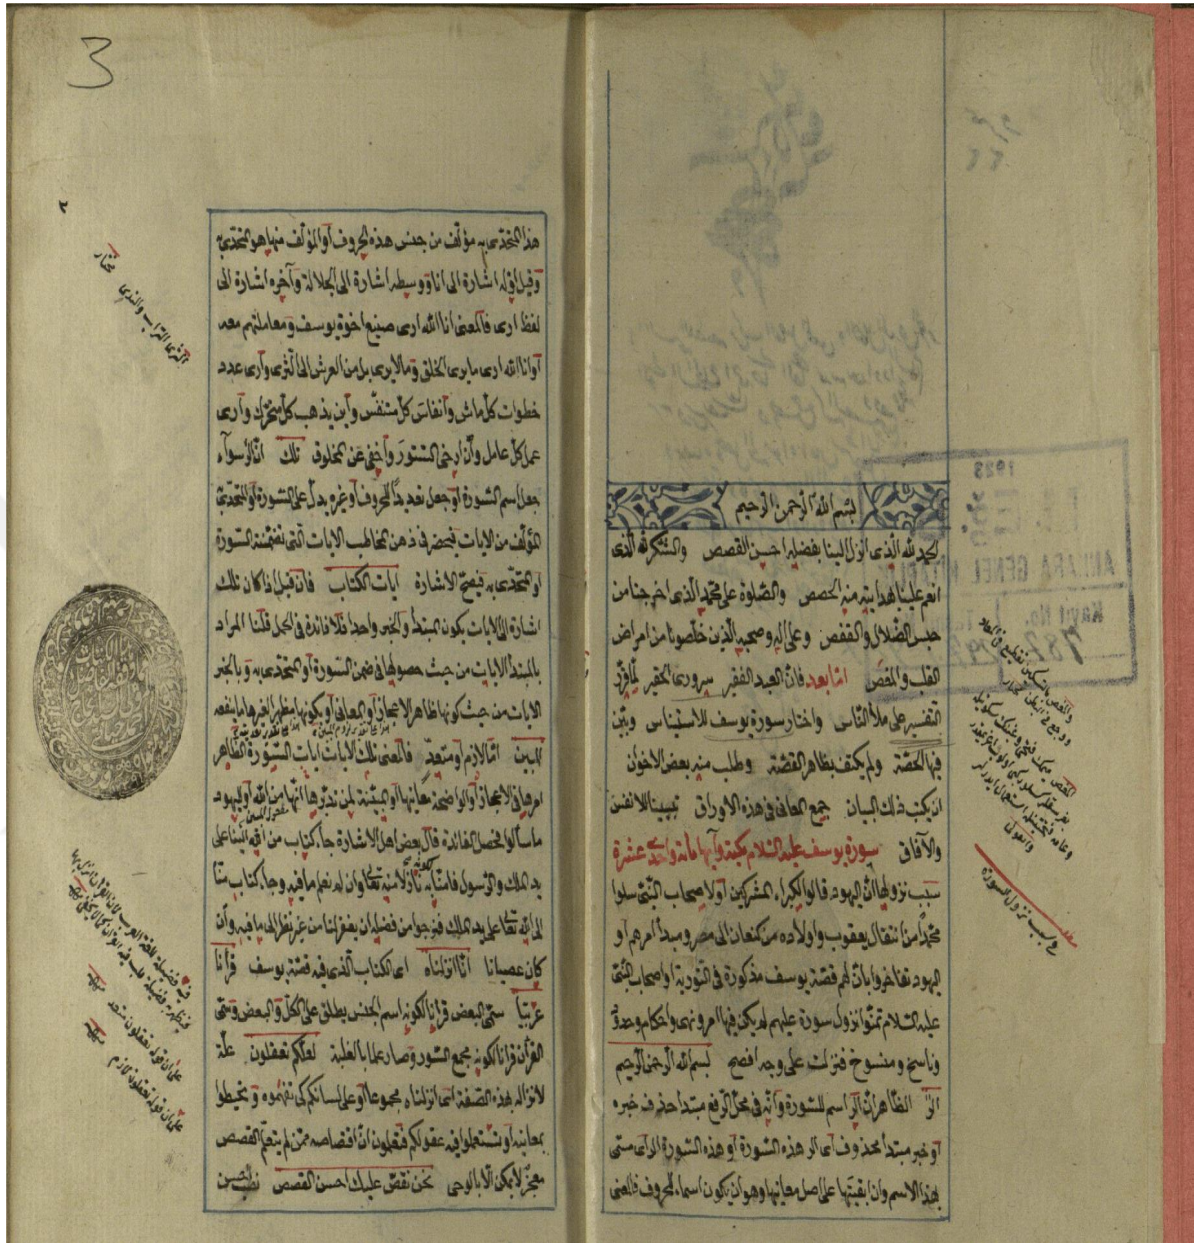 بسم الله الرحمن الرحيم
الحمد لله الذى انزل الينا بفضله احسن القصص والشكر لله الذى
انعم علينا هدايته منه الحصص والصلوة على محمد الذى اخرجنا من
حبس الضلال والقفص وعلى اله وصحبه الذين خلصونا من امراض
القلب والمغص امّا بعد فان العبد الفقير سرورى الحقير لما قرّر
التفسير على ملأ الناس واختار سورة يوسف للاستيناس وبيّن
فيها الحصّة ولم يكتف بظاهر القصّة وطلب منه بعض الاخوان
ان يكتب ذلك البيان جمع المعانى فى هذه الاوراق تبيينا للانفس
والآفاق سورة يوسف عليه السلام مكية وآيها مائة واحدى عشرة
سبب نزولها انّ اليهود قالوا لكبراء المشركين او لاصحاب النبى سلوا
محمدا من انتقال يعقوب واولاده من كنعان الى مصر ومبدأ امرهم او
اليهود تفاخروا بانّ لهم قصّة يوسف مذكورة فى التورية او اصحاب النبى
عليه السلام تمنّوا نزول سورة عليهم لم يكن فيها امر ونهى واحكام وحدود
وناسخ ومنسوخ فنزلت على وجه افصح بسم الله الرحمن الرحيم
الر الظاهر انّ الر اسم للسورة وانّه فى محل الرفع مبتدا حذف خبره
او خبر مبتدأ محذوف اى الر هذه السورة او هذه السورة الر اى مسمّى
بهذا الاسم وان ابقيتها على اصل معانيها وهو ان يكون اسماء للحروف فالمعنى
سبب نزول السورة
1928
ANKARA GENEL
Kayıt No.
3
٢
هذا المتحدّى به مؤلف من جنس هذه الحروف او المؤلف منها هو المتحدّى به
وقيل اوّله اشارة الى انا ووسطه اشارة الى الجلالة وآخره اشارة الى
لفظ ارى فالمعنى انا الله ارى صنيع اخوة يوسف ومعاملتهم معه
او انا الله ارى ما يرى الخلق وما لا يرى بل من العرش الى الثرى وارى عدد
خطوات كل ماش وانفاس كل متنفّس واين يذهب كل متحرك وارى
عمل كل عامل وان ارخى الستور واخفى عن المخلوق تلك ان الر سواء
جعل اسم السورة او جعل تعديدا للحروف او غيره يدل على السورة او المتحدّى به
المؤلف من الايات فيحضر فى ذهن المخاطب الايات التى تضمنته السورة
او المتحدّى به فيصح الاشارة ايات الكتاب فان قيل اذا كان تلك
اشارة الى الايات يكون المبتدأ والخبر واحدا فلا فائدة فى الحمل قلنا المراد
بالمبتدا الايات من حيث حصولها فى ضمن السورة او المتحدّى به وبالخبر
الايات من حيث كونها ظاهر الاعجاز او المعانى او كونها مظهرا لغيرها
المبين امّا لازم او متعدّ فالمعنى تلك الايات ايات السورة الظاهر
امرها فى الاعجاز او الواضحة معانيها او المبيّنة لمن تدبّرها انّها من الله او لليهود
ما سألوا فحصل الفائدة قال بعض اهل الاشارة جاء كتاب من الله الينا على
يد الملك والرسول فامنّا به لانه تعا وان لم نعلم ما فيه وجاء كتاب منّا
الى الله تعا على يد الملك فنرجوا من فضله ان يغفر لنا من غير نظر الى ما فيه وان
كان عصيانا انا انزلناه اى الكتاب الذى فيه قصة يوسف قرآنا
عربيا سمّى البعض قرآنا لكونه اسم الجنس يطلق على الكل والبعض وسمّى
القرآن قرآنا لكونه مجمع السور وصار علما بالغلبة لعلكم تعقلون علّة
لانزاله بهذه الصفة اى انزلناه مجموعا او على لسانكم كى تفهموه وتحيطوا
بمعانيه او تستعملوا فيه عقولكم فتعلمون ان اقتصاصه ممّن لم يتعلّم القصص
معجز لا يمكن الا بالوحى نحن نقصّ عليك احسن القصص
الثرى التراب والندى مختار